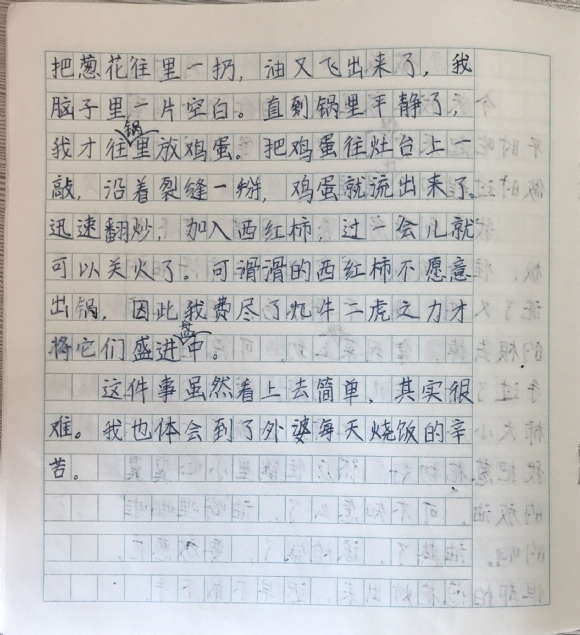 把葱花往里一扔，油又飞出来了，我
脑子里一片空白。直到锅里平静了，
我才往锅里放鸡蛋。把鸡蛋往灶台上一
敲，沿着裂缝一掰，鸡蛋就流出来了。
迅速翻炒，加入西红柿，过一会儿就
可以关火了。可滑滑的西红柿不愿意
出锅，因此我费尽了九牛二虎之力才
将它们盛进盘中。
这件事虽然看上去简单，其实很
难。我也体会到了外婆每天烧饭的辛
苦。